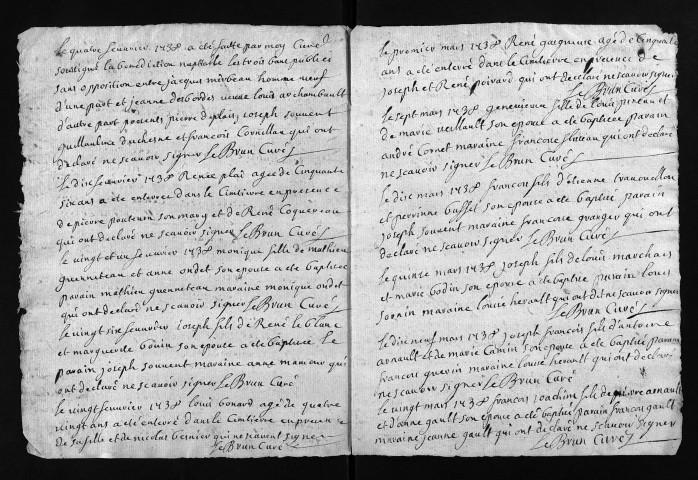 le quatre feuvrier 1738 a eté faitte par moy Curé
soussigné la benediction nuptialle les trois bans publies
sans opposition entre jacque mireau homme neuf
d'une part et jeanne desbordes veuve louis archambault
d'autre part presents pierre joseph souvent
guillaulme duchesne et francois Cornillau qui ont
declaré ne scavoir signer Le Brun Curé
Le dix feuvrier 1738 Renée plai agee de Cinquante
six ans a ete enterree dans le Cimtierre en presence
de pierre poutevin son mary et de René Coquereau
qui ont declaré ne scavoir signer Le Brun Curé
le vingt et un feuvrier 1738 monique fille de mathieu
guenneteau et anne ondet son epouse a ete baptisee
parain mathieu guenneteau maraine monique ondet
qui ont declaré ne scavoir signer Le Brun Curé
le vingt six feuvrier joseph fils de René le blanc
et marguerite bouin son epouse a ete baptisee Le
parain joseph souvent maraine anne mameour qui
ont declaré ne scavoir signer Le Brun Curé
le vingt feuvrier 1738 louis bonard agé de quatre
vingt ans a eté enterré dans le Cimtierre en presence
de sa fille et de nicolas bernier qui ne scavent signer
Le Brun Curé
le premier mars 1738 René gaigneuse agé de Cinquante
ans a eté enterré dans le Cimtierre en presence de
joseph et René poivard qui ont declaré ne scavoir signer
Le Brun Curé
le sept mars 1738 genevieue fille de louis
de marie son epouse a ete baptisee parain
andré Cornet maraine francoise qui ont declaré
ne scavoir signer Le Brun Curé
le dix mars 1738 francois fils d'étienne
et perrinne bassel son epouse a ete baptisé parain
joseph souvent maraine francoise granger qui ont
declaré ne scavoir signer Le Brun Curé
le quinze mars 1738 joseph fils de louis marchais
et marie bodin son epouse a ete baptisé parain louis
sornin maraine louise herault qui ont dit ne scavoir signer
Le Brun Curé
le dix neuf mars 1738 joseph francois fils d'antoine
arnault et de marie Camin son epouse a ete baptisé parain
francois guerin maraine louise herault qui ont declaré
ne scavoir signer Le Brun Curé
le vingt mars 1738 francois joachim fils de pierre arnault
et d'anne gault son epouse a ete baptisé parain francois gault
maraine jeanne gault qui ont declaré ne scavoir signer
Le Brun Curé